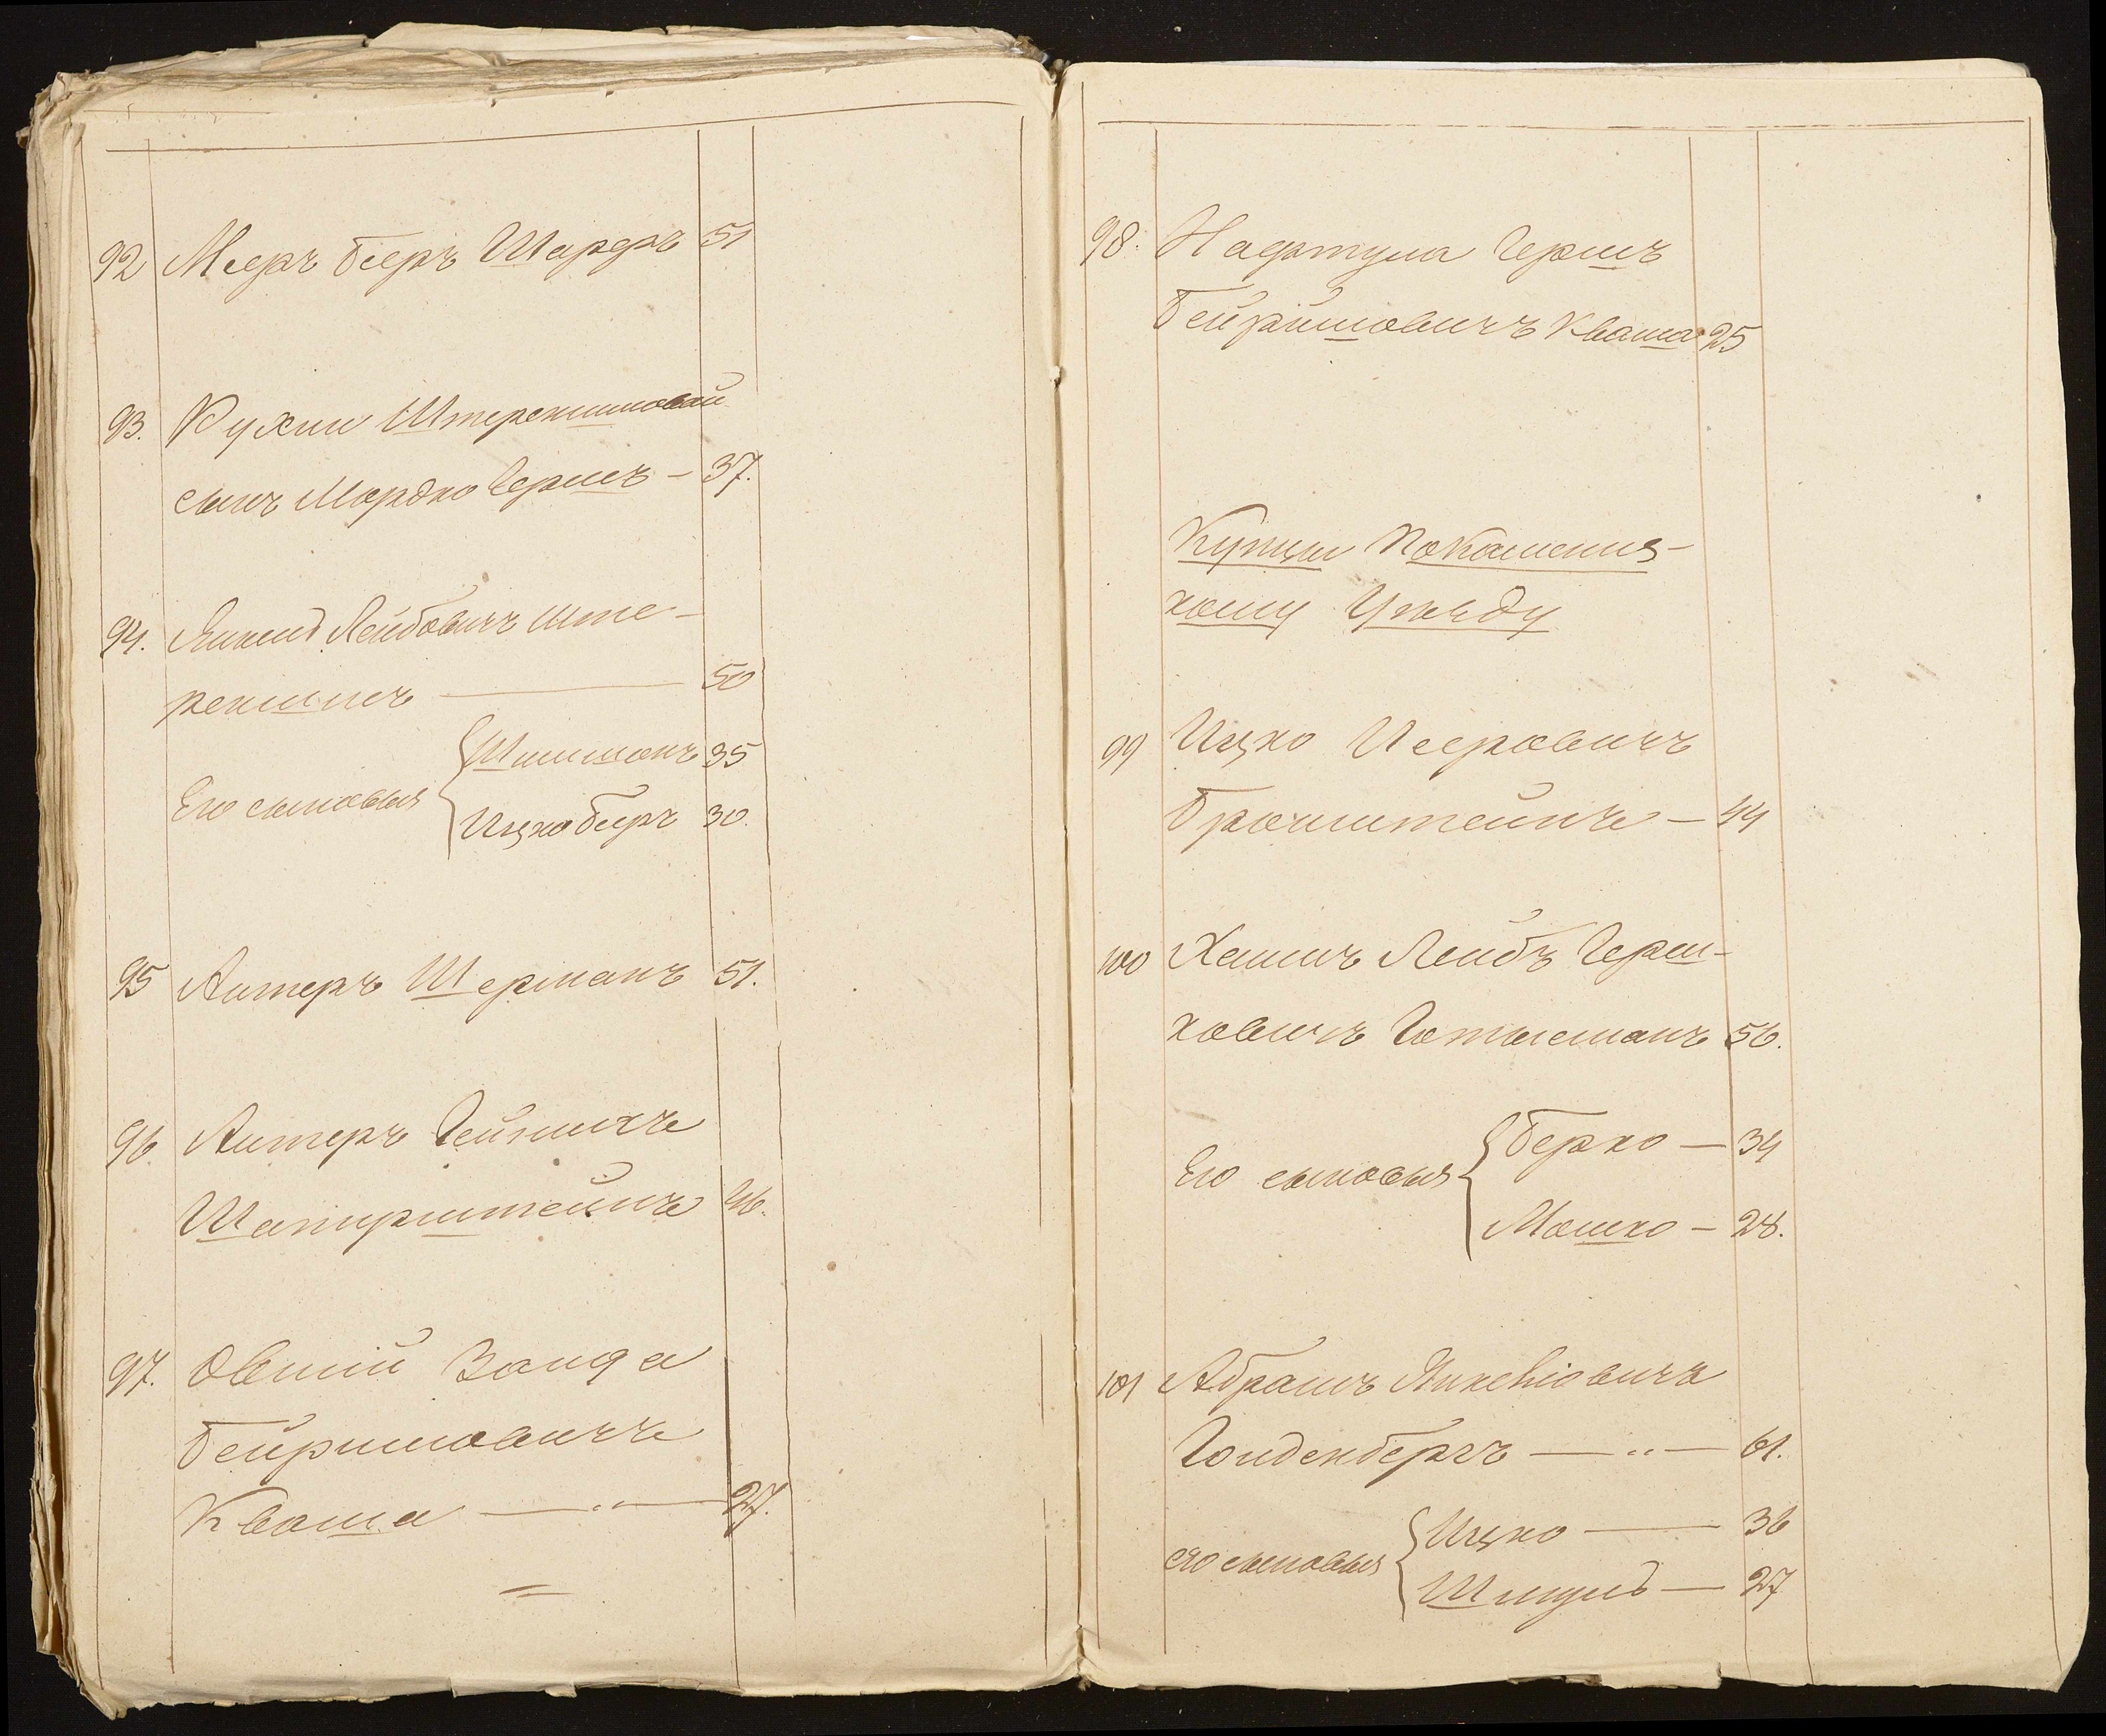 92 Меер Беер Шарфъ 51
93. Рухли Штереншисовой
сынъ Мордко Гершъ - 37.
94. Янкель Лейбовичъ Ште-
реншисъ — 50
Его сыновья
Шимшонъ 35
Ицко Беръ 30.
95 Алтеръ Шерманъ 51.
96. Алтеръ Гейнихъ
Шапирштейнъ 46.
97. Овший Ванда
Бейришовичъ
Кваша — " — 27.
98. Нафтула Гершъ
Бейришовичъ Кваша 25
Купцы по Каменец-
кому Уѣзду
99 Ицко Иееровичъ
Бронштейнъ — 44
100 Хаимъ Лейбъ Герш-
ковичъ Готлисманъ 56.
Его сыновья
Берко — 34
Мошко — 28.
101 Абрамъ Янкеліовичъ
Голденбергъ — " — 61.
его сыновья
Ицко — 36
Шмуль — 27